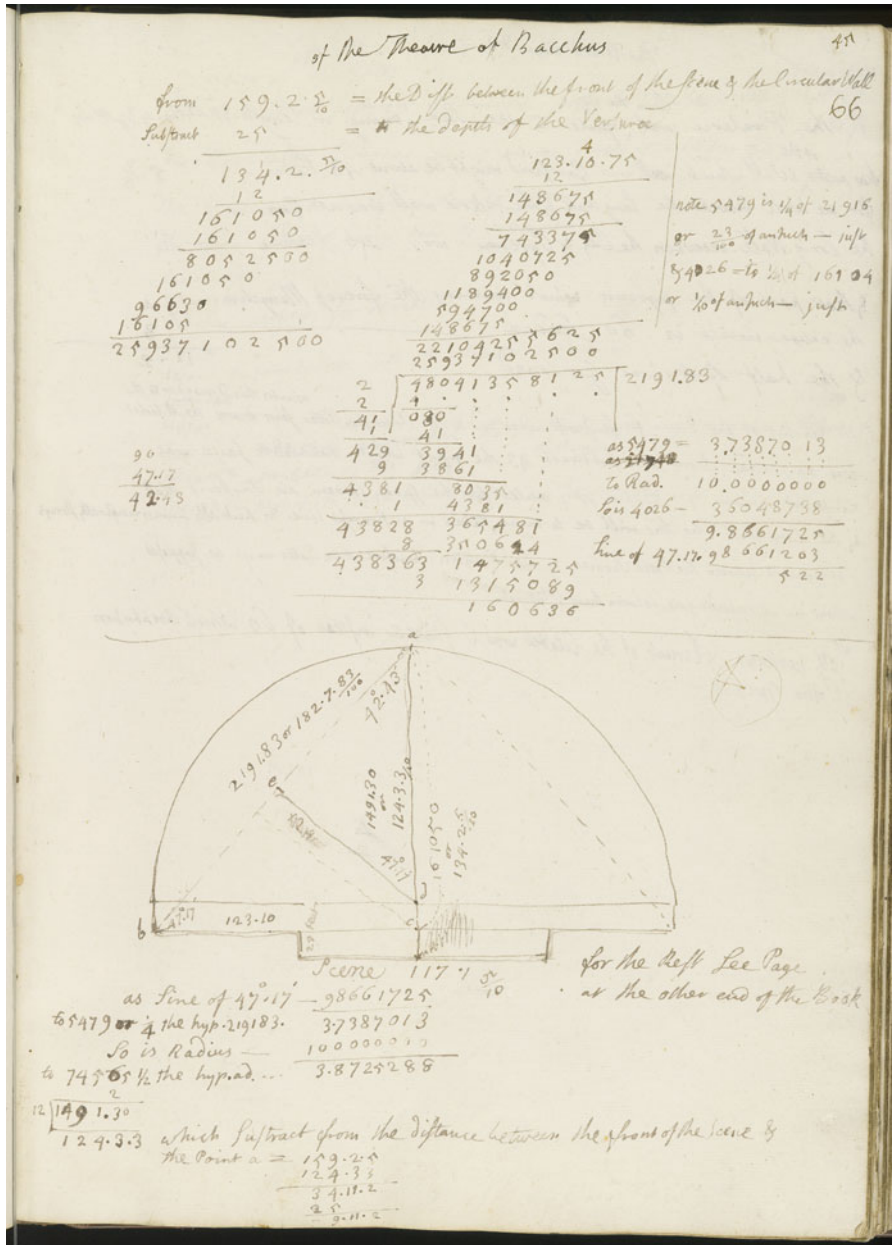 of the Theatre of Bacchus
45
66
from 159.2.5/10 = the Diff between the front of the Scene & the Circular Wall
Substract 25 = the depth of the Versura
134.2.5/10
12
161050
161050
8052500
161050
96630
16105
25937102500
4
123.10.75
12
148675
148675
743375
1040725
892050
1189400
594700
148675
22104255625
25937102500
note 5479 is 1/4 of 21916
or 23/100 of an Inch — just
& 4026 = to 1/4 of 16104
or 1/10 of an Inch — just
2 48041358125 219.183
2 4
41 080
1 41
429 3941
9 3861
4381 8035
1 4381
43828 365481
8 350624
438363 1475725
3 1315089
160636
90
47.17
42.43
as 5479 = 3.7387013
to Rad. 10.0000000
So is 4026 – 36048738
9.8661725
Sine of 47.17. 98661203
522
a
219183 or 182.7.83/100
42°.43'
e
149130
or
124.3.3/10
161050
or
134.2.5/10
47°.17'
d
c
b
47°.17'
123.10
25 feet
Scene 117.1 5/10
for the Rest See Page
at the other end of the Book
as Sine of 47°.17' – 98661725
to 5479 or 1/4 the hyp. 219183. 3.7387013
So is Radius — 10000000
to 74565 1/2 the hyp. ad... 3.8725288
2
12 1491.30
124.3.3 which Substract from the distance between the front of the Scene &
the Point a = 159.2.5
124.33
34.11.2
25
9.11.2